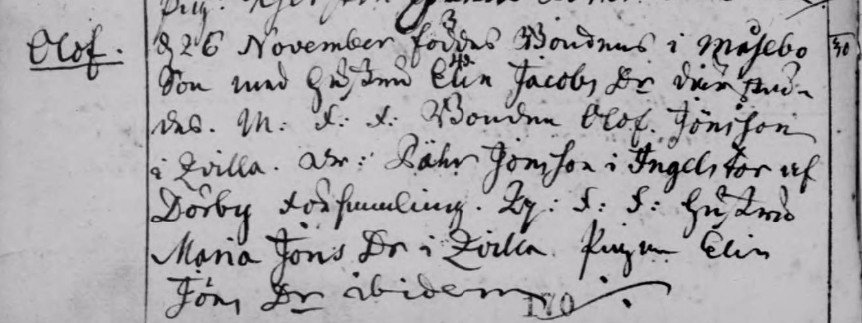 Olof.
d 26 November föddes Bondens i Måsebo 30
Son med Hustru Elin Jacobs Dr
des. M: f: f: Bonden Olof. Jönsson
i Qvilla. Dr: Pähr Jönsson i Ingelstor af
Dörby församling. Qv: f: f: Hustru
Maria Jöns Dr i Qvilla. Pigan Elin
Jöns Dr ibidem
170